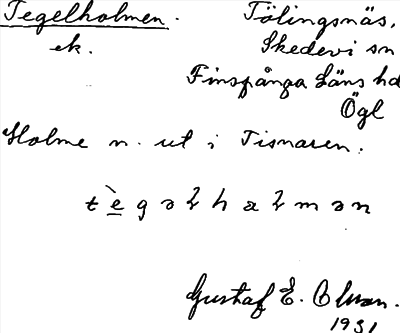 Tegelholmen. Tölingsnäs,
ek. Skedevi sn
Finspånga Läns hd
Ögl
Holme n. ut i Tisnaren.
Gustaf E. Olsson.
1931